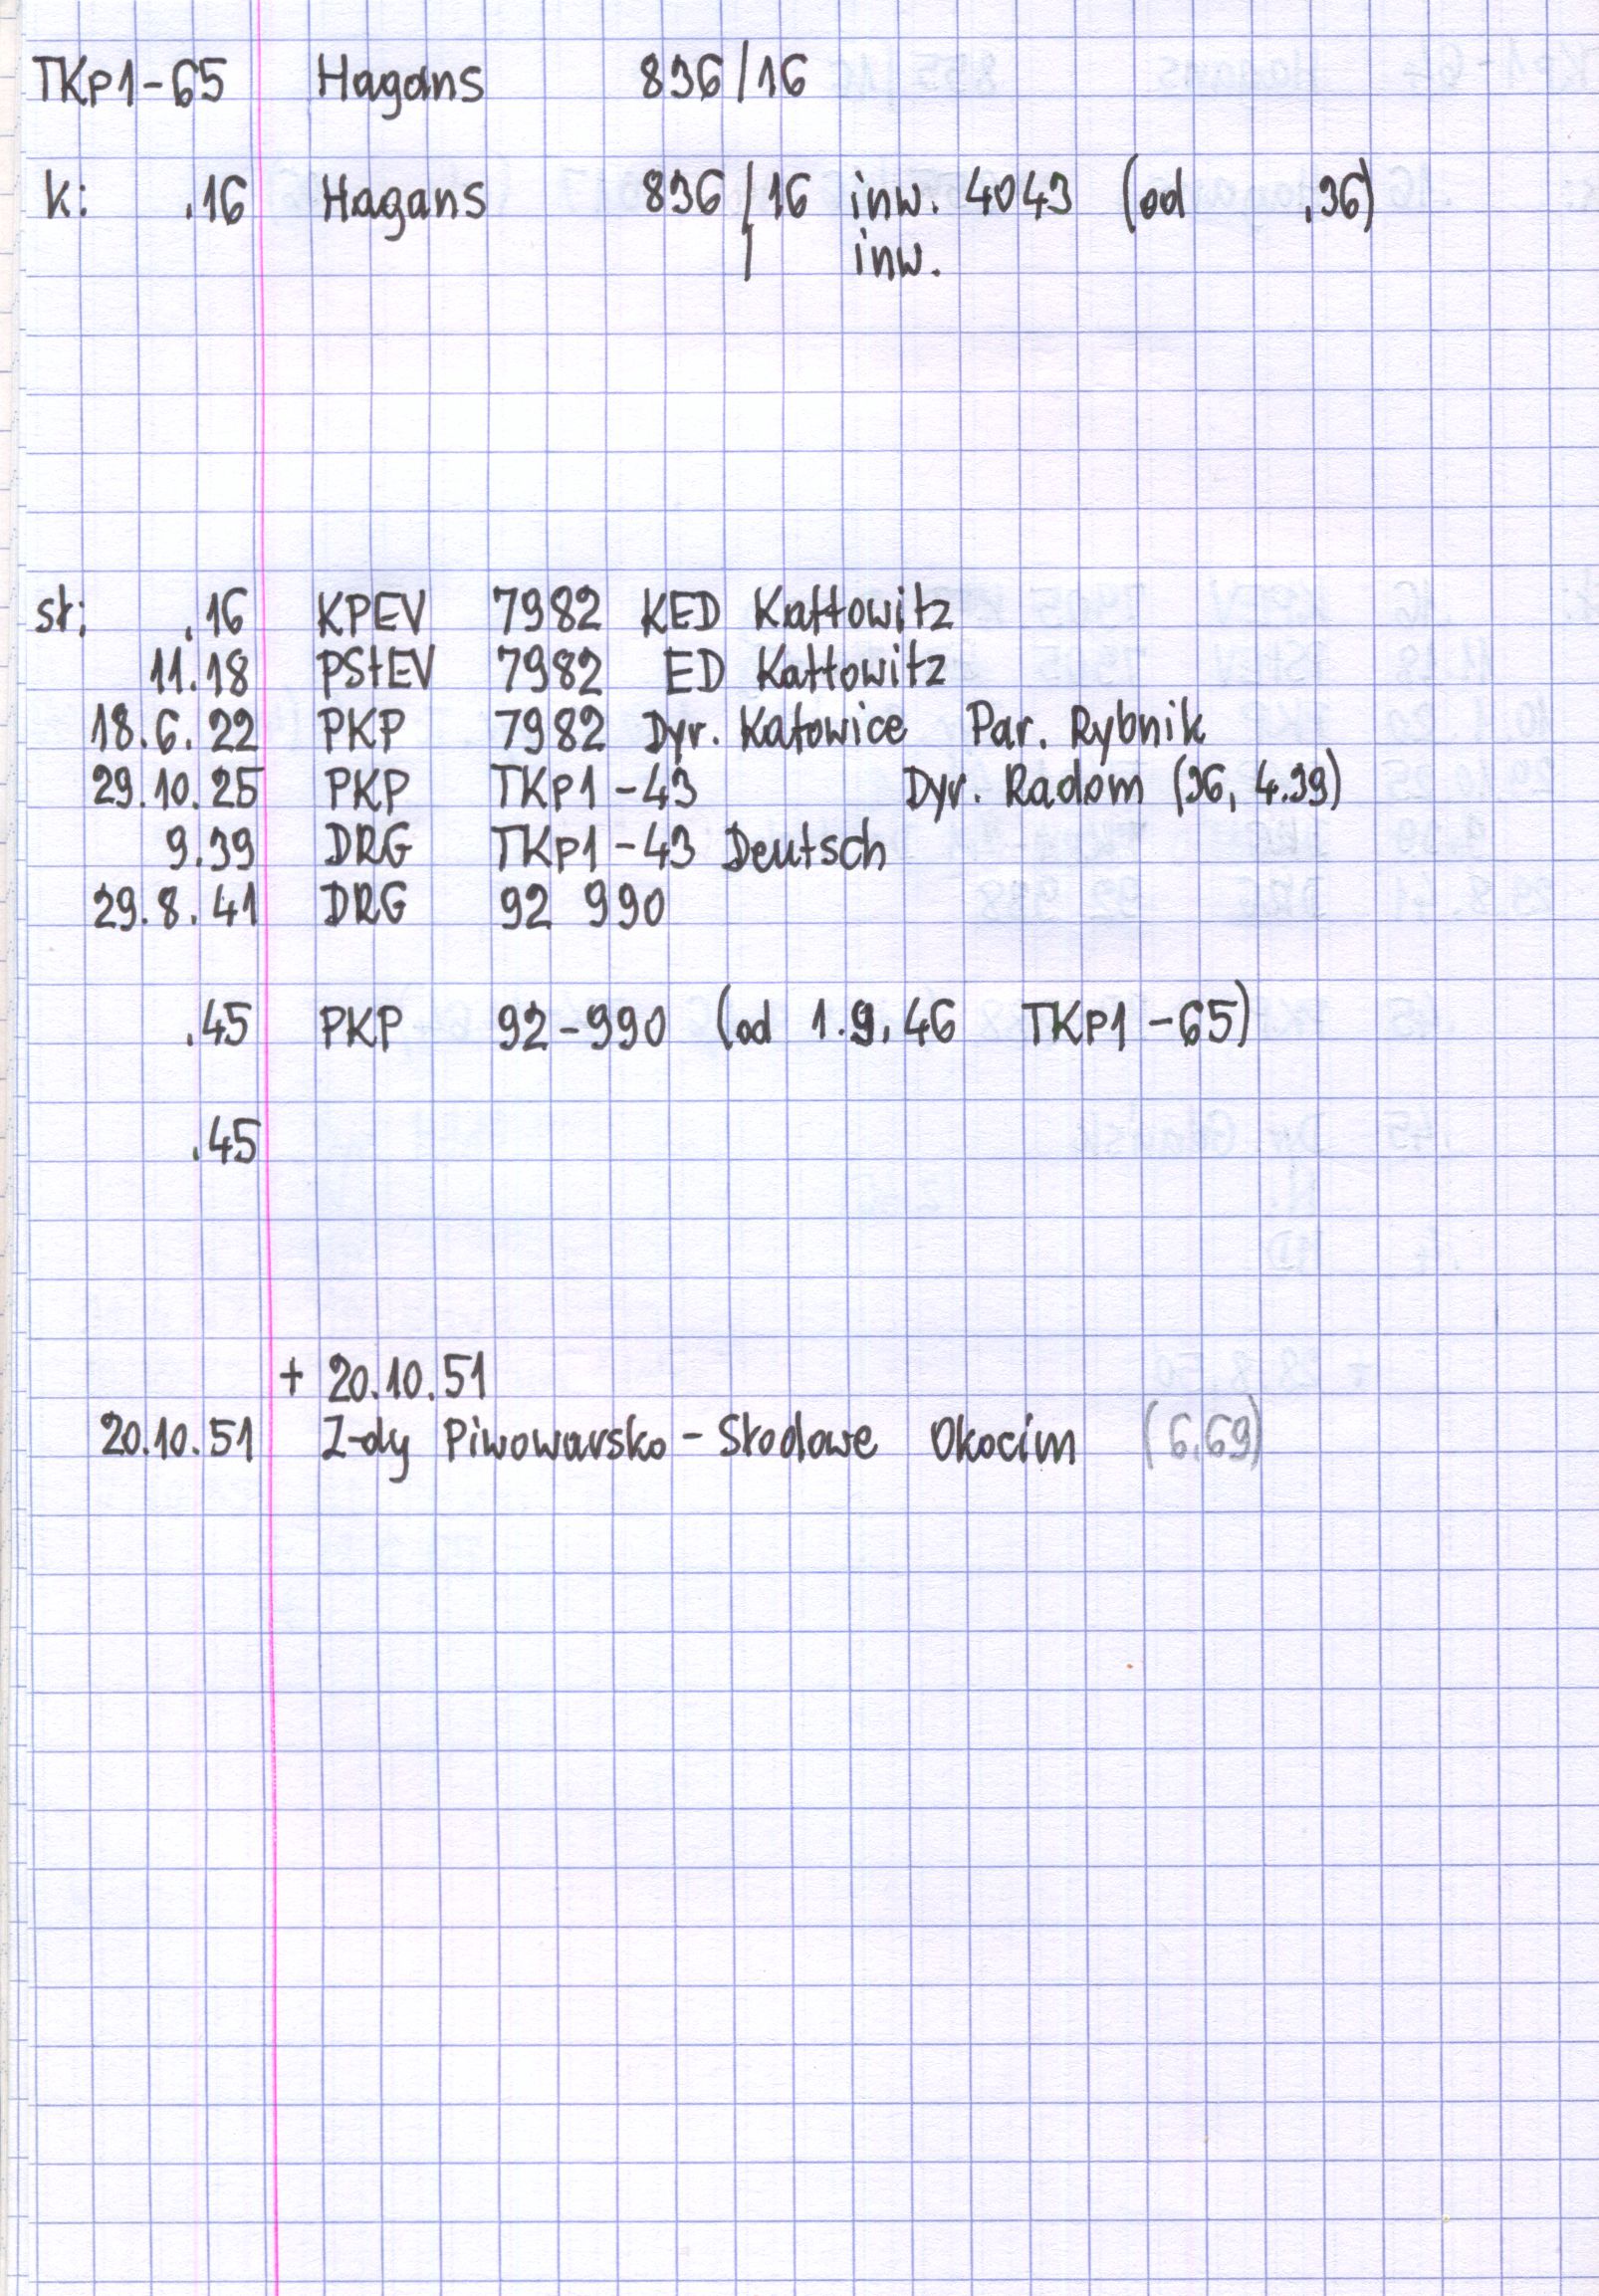 TKp1-65 Hagans 836/16
k: .16 Hagans 836/16 inw. 4043 (od .36)
/ inw.
st: .16 KPEV 7982 KED Kattowitz
11.18 PStEV 7982 ED Kattowitz
18.6.22 PKP 7982 Dyr. Katowice Par. Rybnik
29.10.25 PKP TKp1-43 Dyr. Radom (36, 4.39)
9.39 DRG TKp1-43 Deutsch
29.8.41 DRG 92 990
.45 PKP 92-990 (od 1.9.46 TKp1-65)
.45
+ 20.10.51
20.10.51 Z-dy Piwowarsko-Słodowe Okocim (6.69)